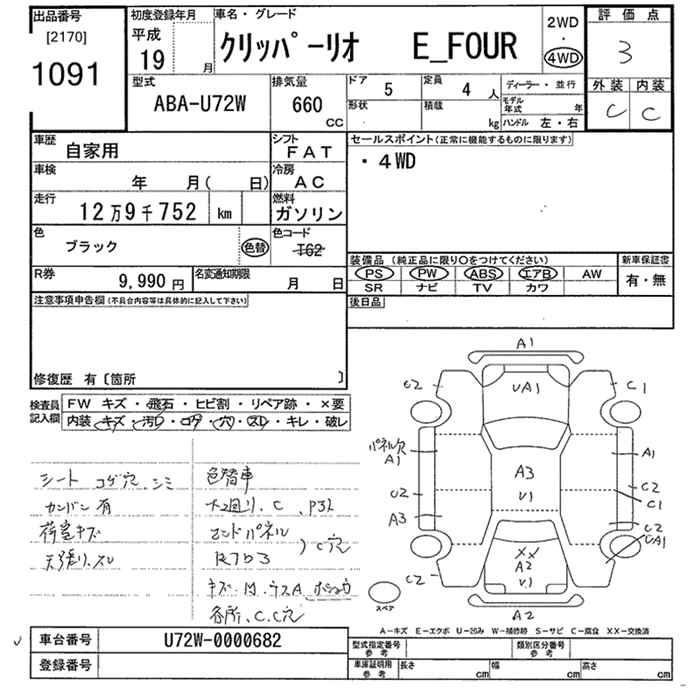 出品番号
[2170]
1091
初度登録年月
平成
19 年 月
車名・グレード
クリッパーリオ E_FOUR
2WD
・
4WD
評価点
3
外装 内装
C C
型式
ABA-U72W
排気量
660
CC
ドア
5
定員
4 人
形状
積載
kg
ディーラー・並行
モデル年式 年
ハンドル 左・右
車歴
自家用
シフト
FAT
車検
年 月( 日)
冷房
AC
走行
12万9千752 km
燃料
ガソリン
色
ブラック
色替
色コード
T62
R券
9,990 円
名変通知期限
月 日
セールスポイント(正常に機能するものに限ります)
・4WD
装備品 (純正品に限り○をつけてください)
PS PW ABS エアB AW
SR ナビ TV カワ
新車保証書
有・無
後日品
注意事項申告欄(不具合内容等は具体的に記入して下さい)
修復歴 有〔箇所 〕
検査員記入欄
FW キズ・飛石・ヒビ割・リペア跡・×要
内装・キズ・汚レ・コゲ・穴・スレ・キレ・破レ
シート コゲ穴、シミ
カンバン有
荷室キズ
天張り、スレ
色替車
エンドパネル
C穴
各所、C、C穴
A1
C2
UA1
C1
パネル穴
A1
A1
A3
V1
C2
C2
C1
A3
C2
UA1
XX
A2
V1
C2
A2
スペア
A-キズ E-エクボ U-凹み W-補修跡 S-サビ C-腐食 XX-交換済
車台番号
U72W-0000682
登録番号
型式指定番号
参考
類別区分番号
参考
車庫証明用
参考
長さ cm
幅 cm
高さ cm